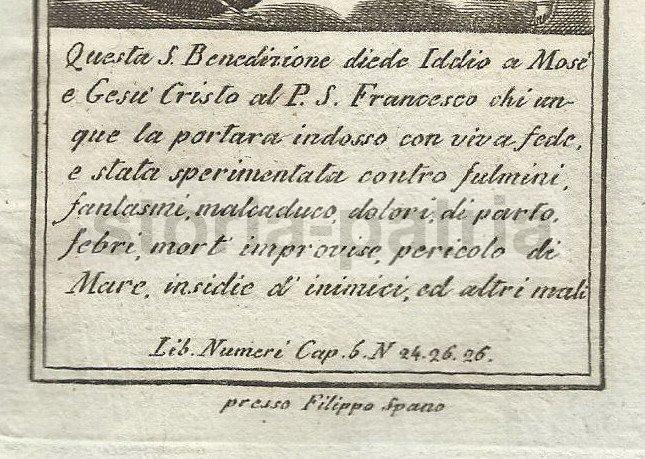 Questa S. Benedizione diede Iddio a Mosé
e Gesu' Cristo al P. S. Francesco chi un-
que la portara indosso con viva fede,
e stata sperimentata contro fulmini,
fantasmi, malcaduco, dolori di parto,
storia-patria
febri, mort' improvise, pericolo di
Mare, insidie d' inimici, ed altri mali
Lib. Numeri Cap. 6. N 24. 26. 26.
presso Filippo Spano